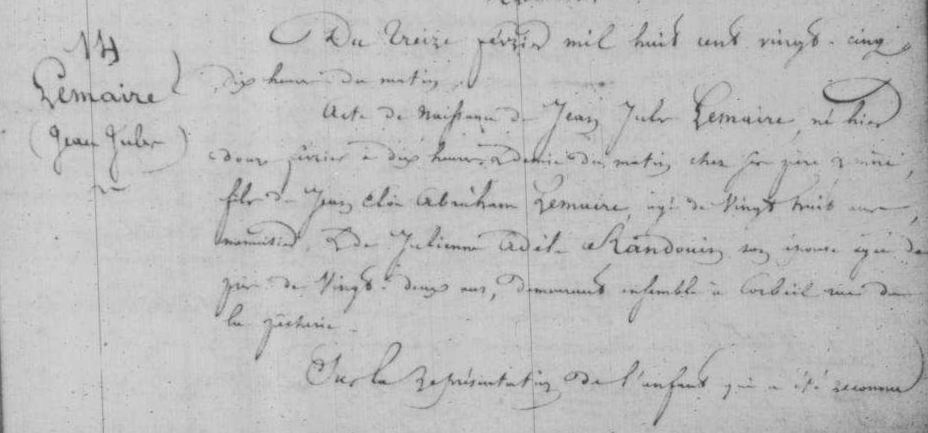 14
Lemaire
(Jean Jules)
Du treize février mil huit cent vingt-cinq
dix heures du matin.
Acte de Naissance de Jean Jules Lemaire, né hier
douze février à dix heures & demie du matin chez ses père & mère,
fils de Jean Eloi Abraham Lemaire, âgé de Vingt huit ans,
menuisier, & de Julienne Adèle Randouin son épouse âgée de
près de Vingt-deux ans, demeurant ensemble à Corbeil rue de
la pêcherie.
Sur la représentation de l'enfant qui a été reconnu